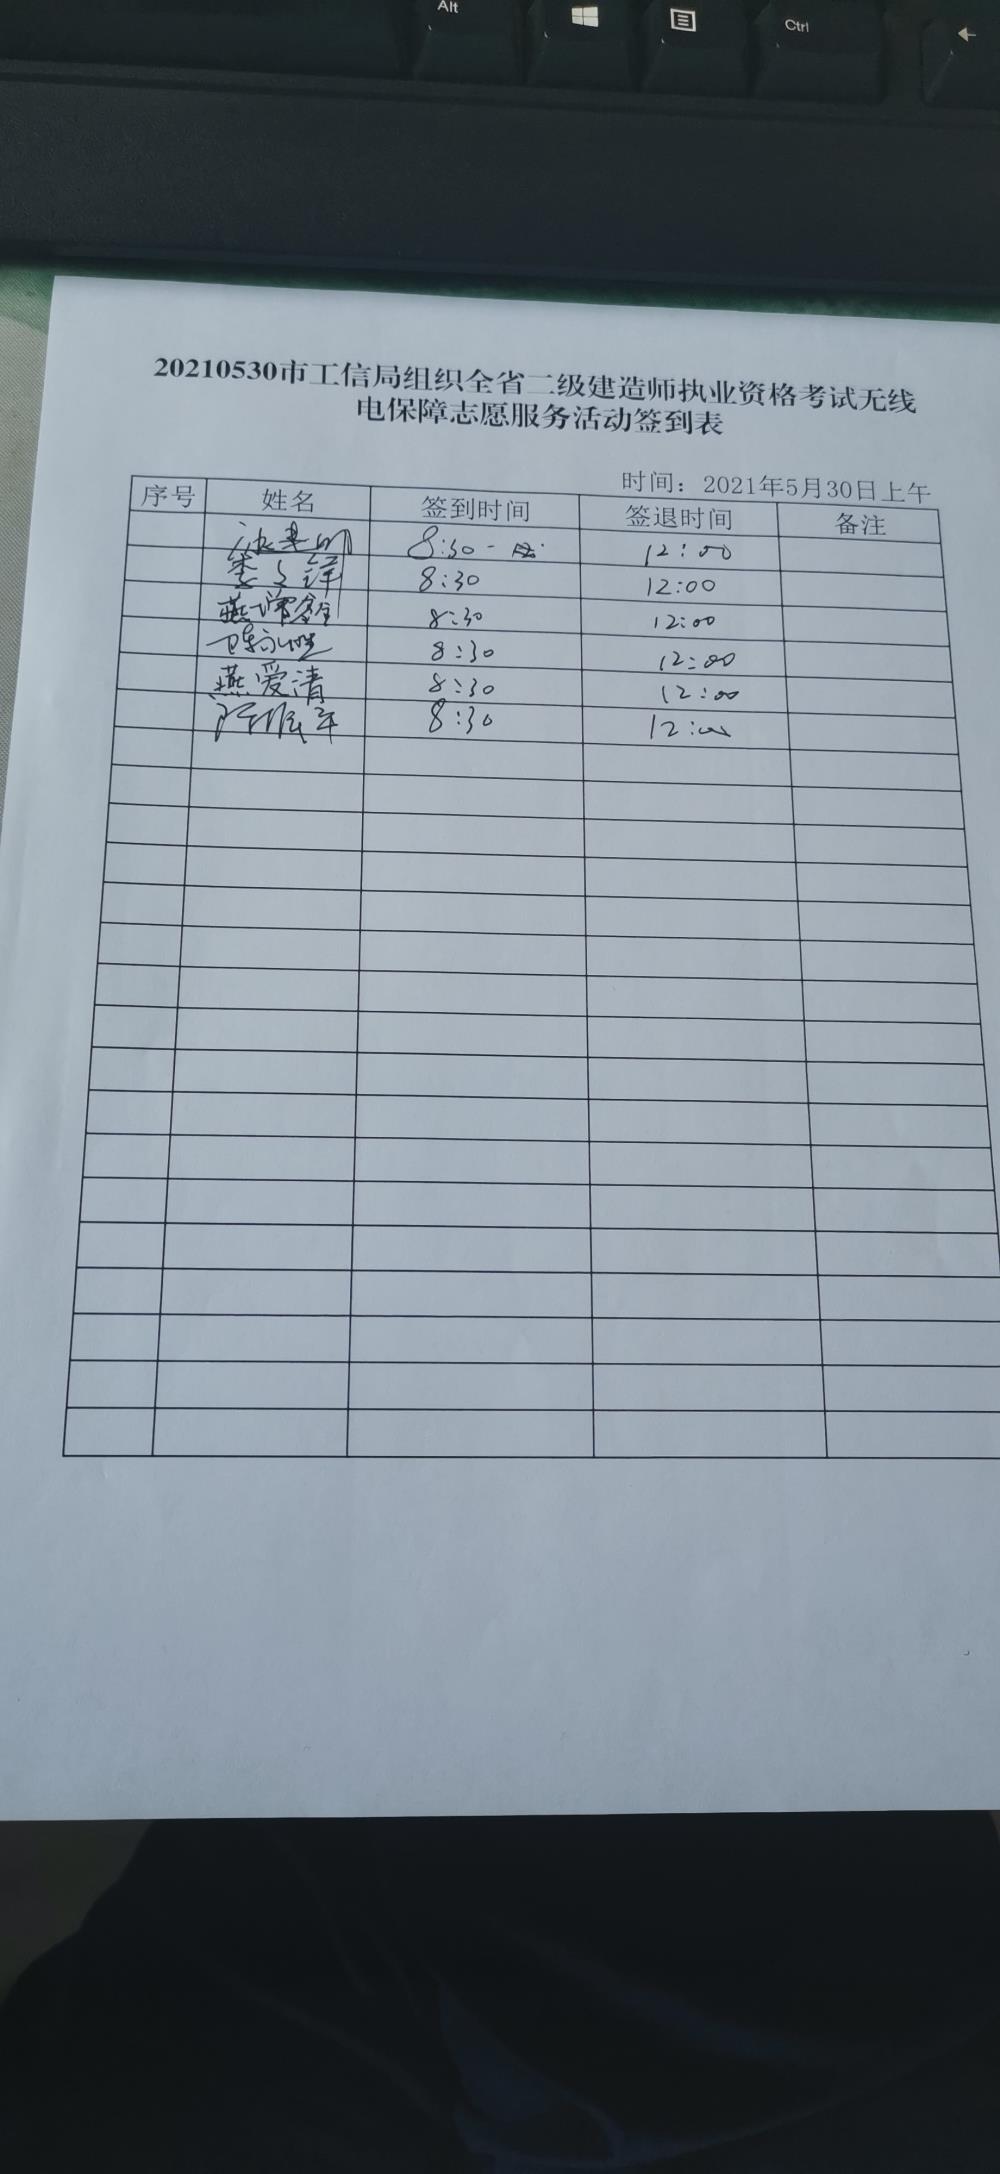 Alt
Ctrl
20210530市工信局组织全省二级建造师执业资格考试无线
电保障志愿服务活动签到表
时间：2021年5月30日上午
序号 姓名 签到时间 签退时间 备注
8:30 - 12:00
8:30 12:00
燕 8:30 12:00
8:30 12:00
燕爱清 8:30 12:00
8:30 12:00